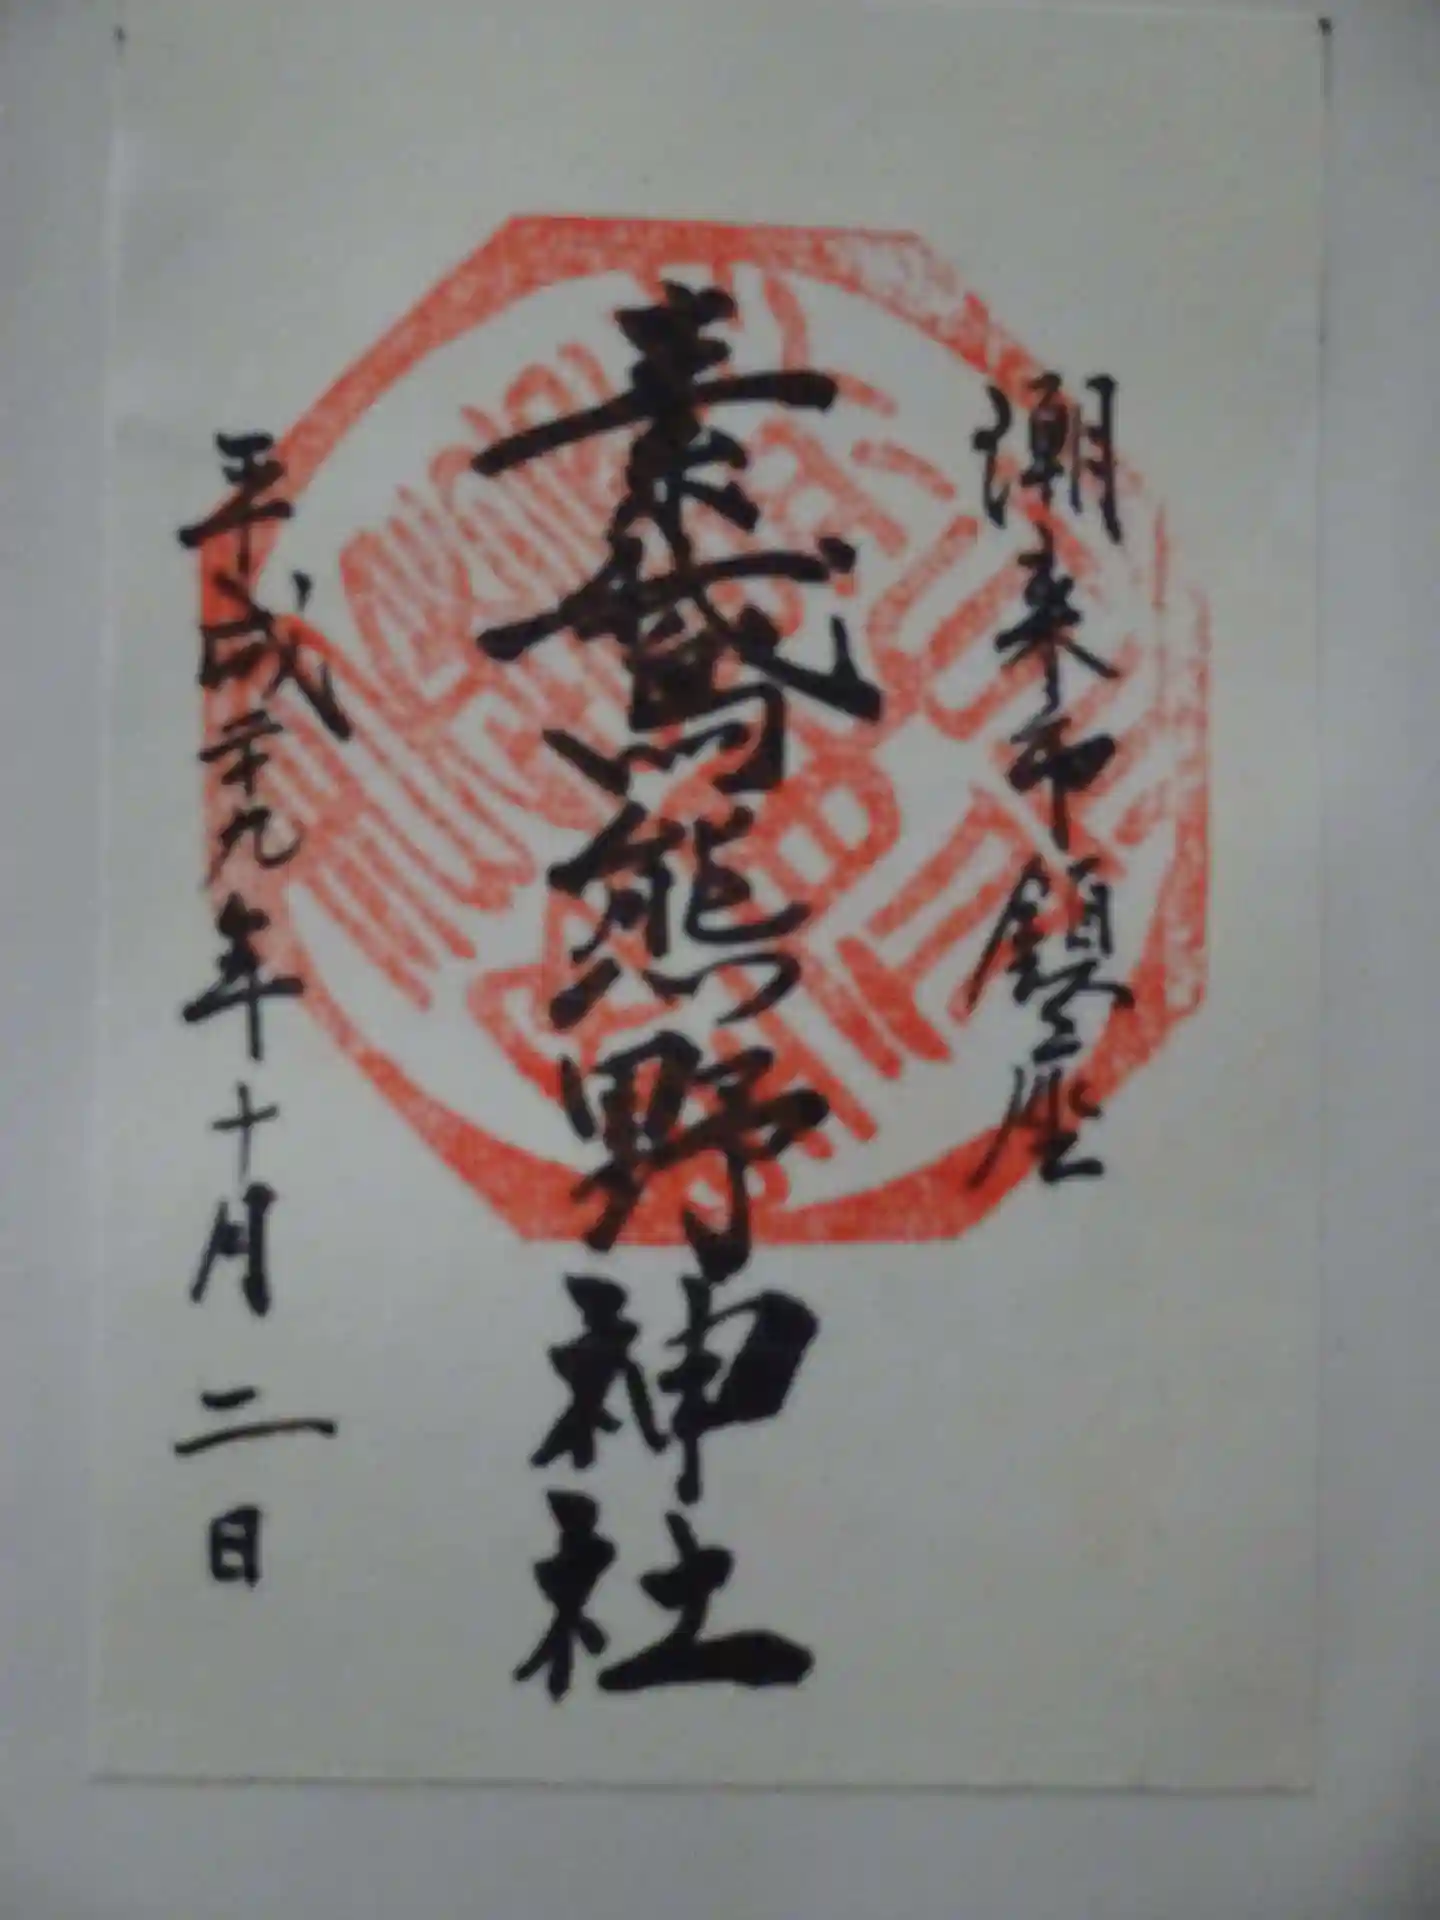 潮来市鎮座
素鵞熊野神社
平成二十九年十月二日